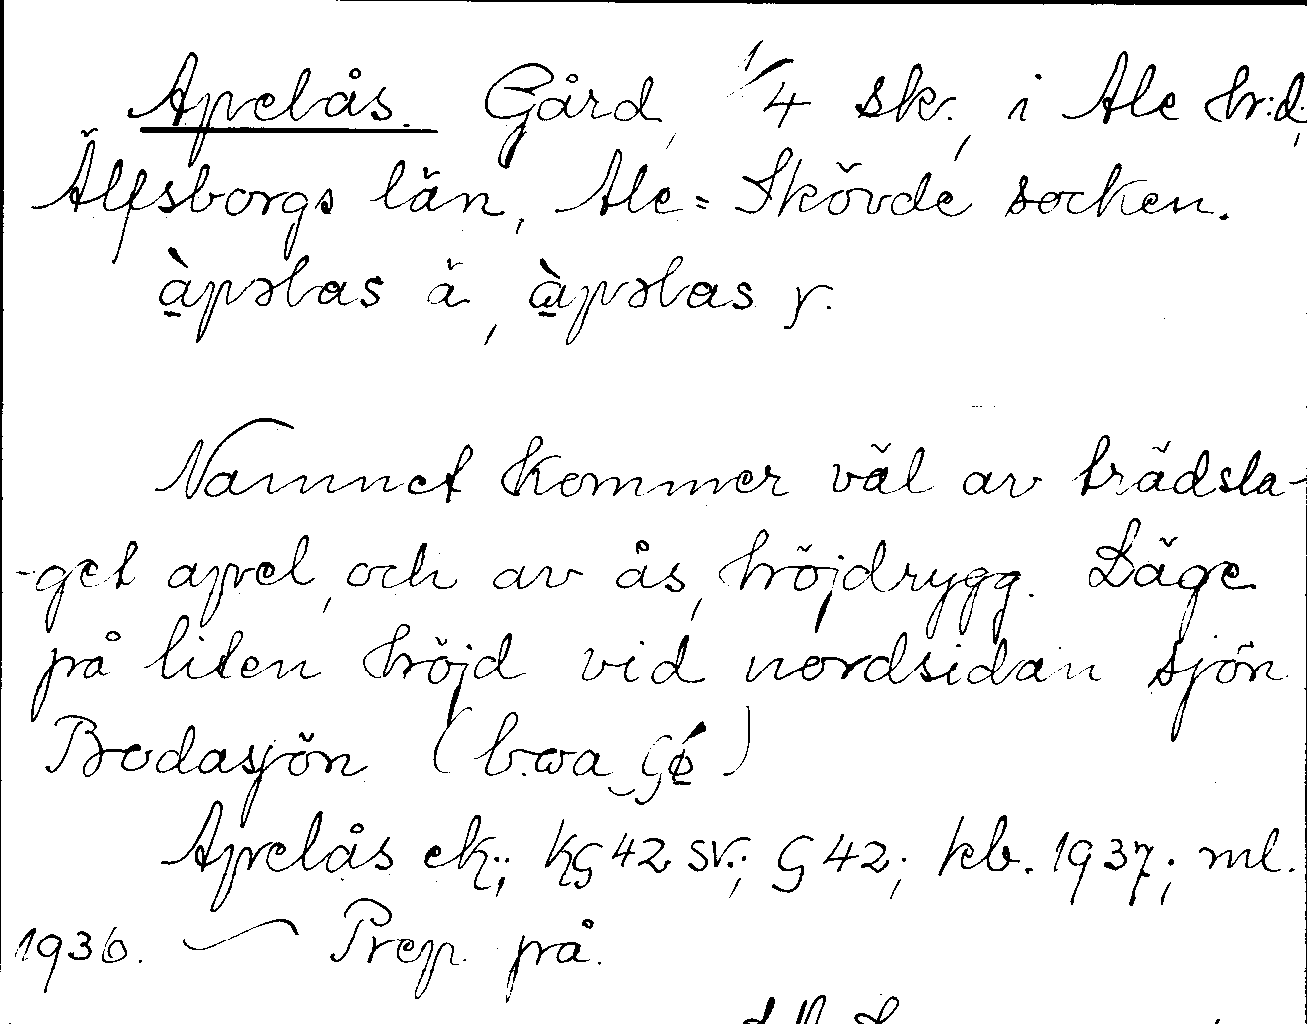 Apelås. Gård, 1/4 sk., i Ale hr:d,
Älfsborgs län, Ale=Skövde socken.
àpəlas ä, ὰpəlas y.
Namnet kommer väl av trädsla-
-get apel, och av ås, höjdrygg. Läge
på liten höjd vid nordsidan sjön
Brodasjön
Apelås ek.; KG 42 SV.; G 42; kb. 1937; ml.
1936. — Prep. på.